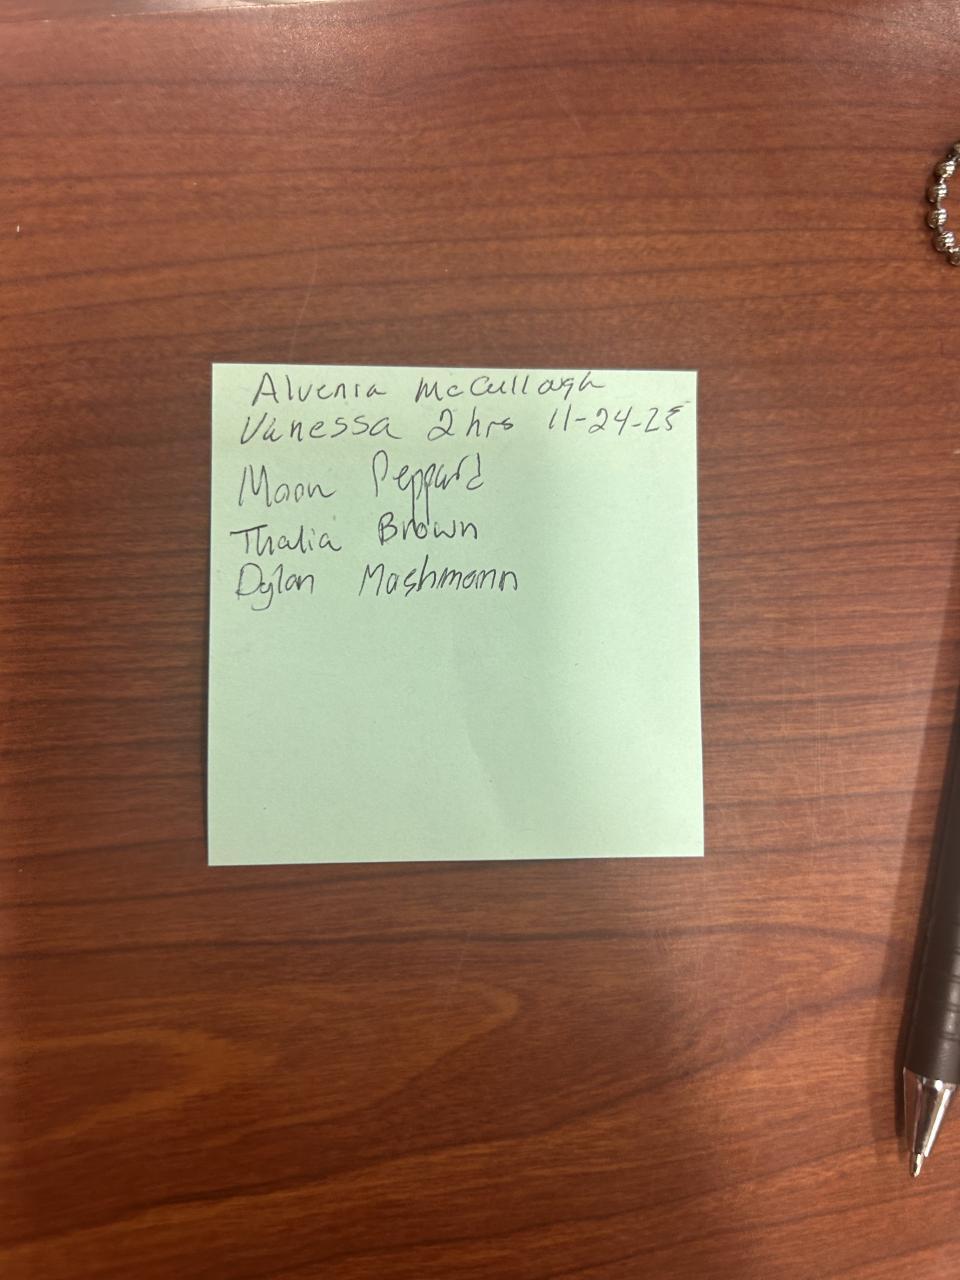 Alvenia McCullough
Vanessa 2 hrs 11-24-25
Moon Peppard
Thalia Brown
Dylan Mashmann